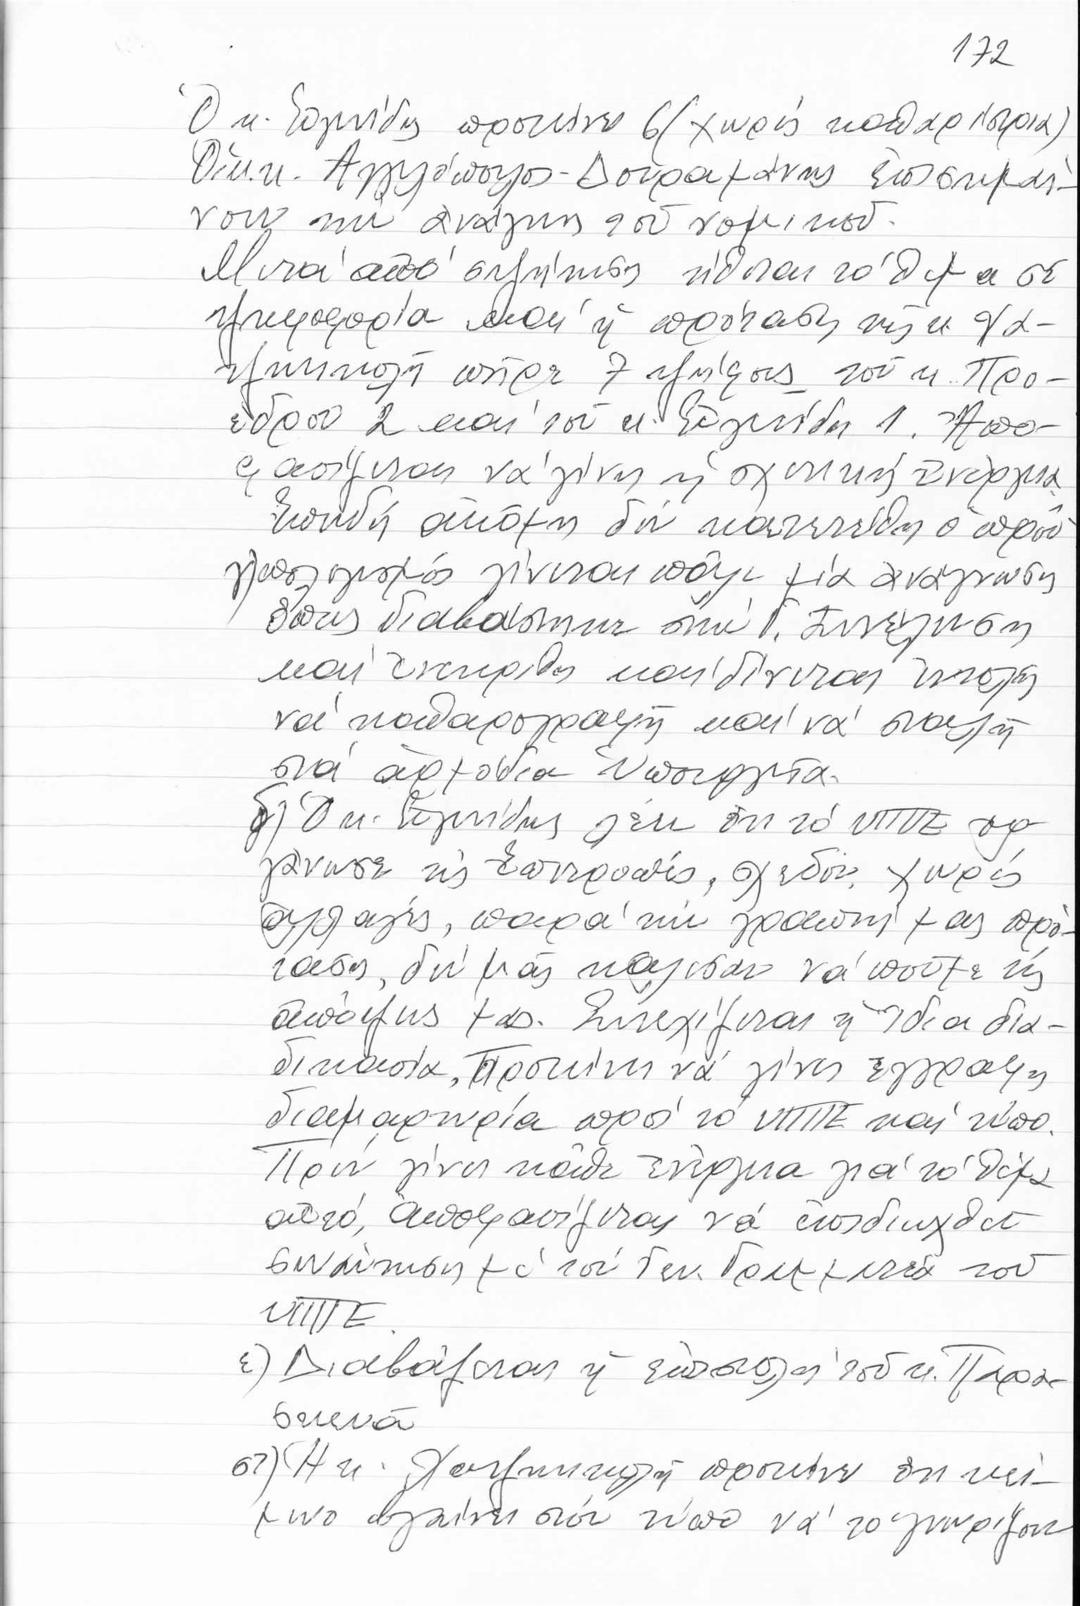 172
Ὁ κ. Εὐγενίδης προτείνει 6 (χωρίς καθαρίστρια)
Οἱ κ.κ. Ἀγγελόπουλος - Δουραμάνης ἐπισημαί-
νουν τήν ἀνάγκη τοῦ νομικοῦ.
Μετά ἀπό συζήτηση τίθεται τό θέμα σέ
ψηφοφορία καί ἡ πρόταση τῆς κ. Χα-
τζηνικολῆ πῆρε 7 ψήφους τοῦ κ. Προ-
έδρου 2 καί τοῦ κ. Εὐγενίδη 1. Ἀπο-
φασίζεται νά γίνη ἡ σχετική ἐνέργεια.
Ἐπειδή ἀκόμη δέν κατετέθη ὁ προϋ
πολογισμός γίνεται πάλι μία ἀνάγνωση
ὅπως διαβάστηκε στήν Γ. Συνέλευση
καί ἐνεκρίθη καί δίνεται ἐντολή
νά καθαρογραφῆ καί νά σταλῆ
στά ἁρμόδια Ὑπουργεῖα.
δ) Ὁ κ. Εὐγενίδης λέει ὅτι τό ΥΠΠΕ ὀρ
γάνωσε τίς Ἐπιτροπές, σχεδόν χωρίς
ἀλλαγές, παρά τήν γραπτή μας πρό-
ταση, δέν μᾶς κάλεσαν νά ποῦμε τίς
ἀπόψεις μας. Συνεχίζεται ἡ ἴδια δια-
δικασία. Προτείνει νά γίνει ἔγγραφη
διαμαρτυρία πρός τό ΥΠΠΕ καί τύπο.
Πρίν γίνει κάθε ἐνέργεια γιά τό θέμα
αὐτό, ἀποφασίζεται νά ἐπιδιωχθεῖ
συνάντηση μέ τόν Γεν. Γραμματέα τοῦ
ΥΠΠΕ.
ε) Διαβάζεται ἡ ἐπιστολή τοῦ κ. Παρα-
σκευᾶ
στ) Ἡ κ. Χατζηνικολῆ προτείνει ὅτι κεί-
μενο βγαίνει στόν τύπο νά τό γνωρίζουν